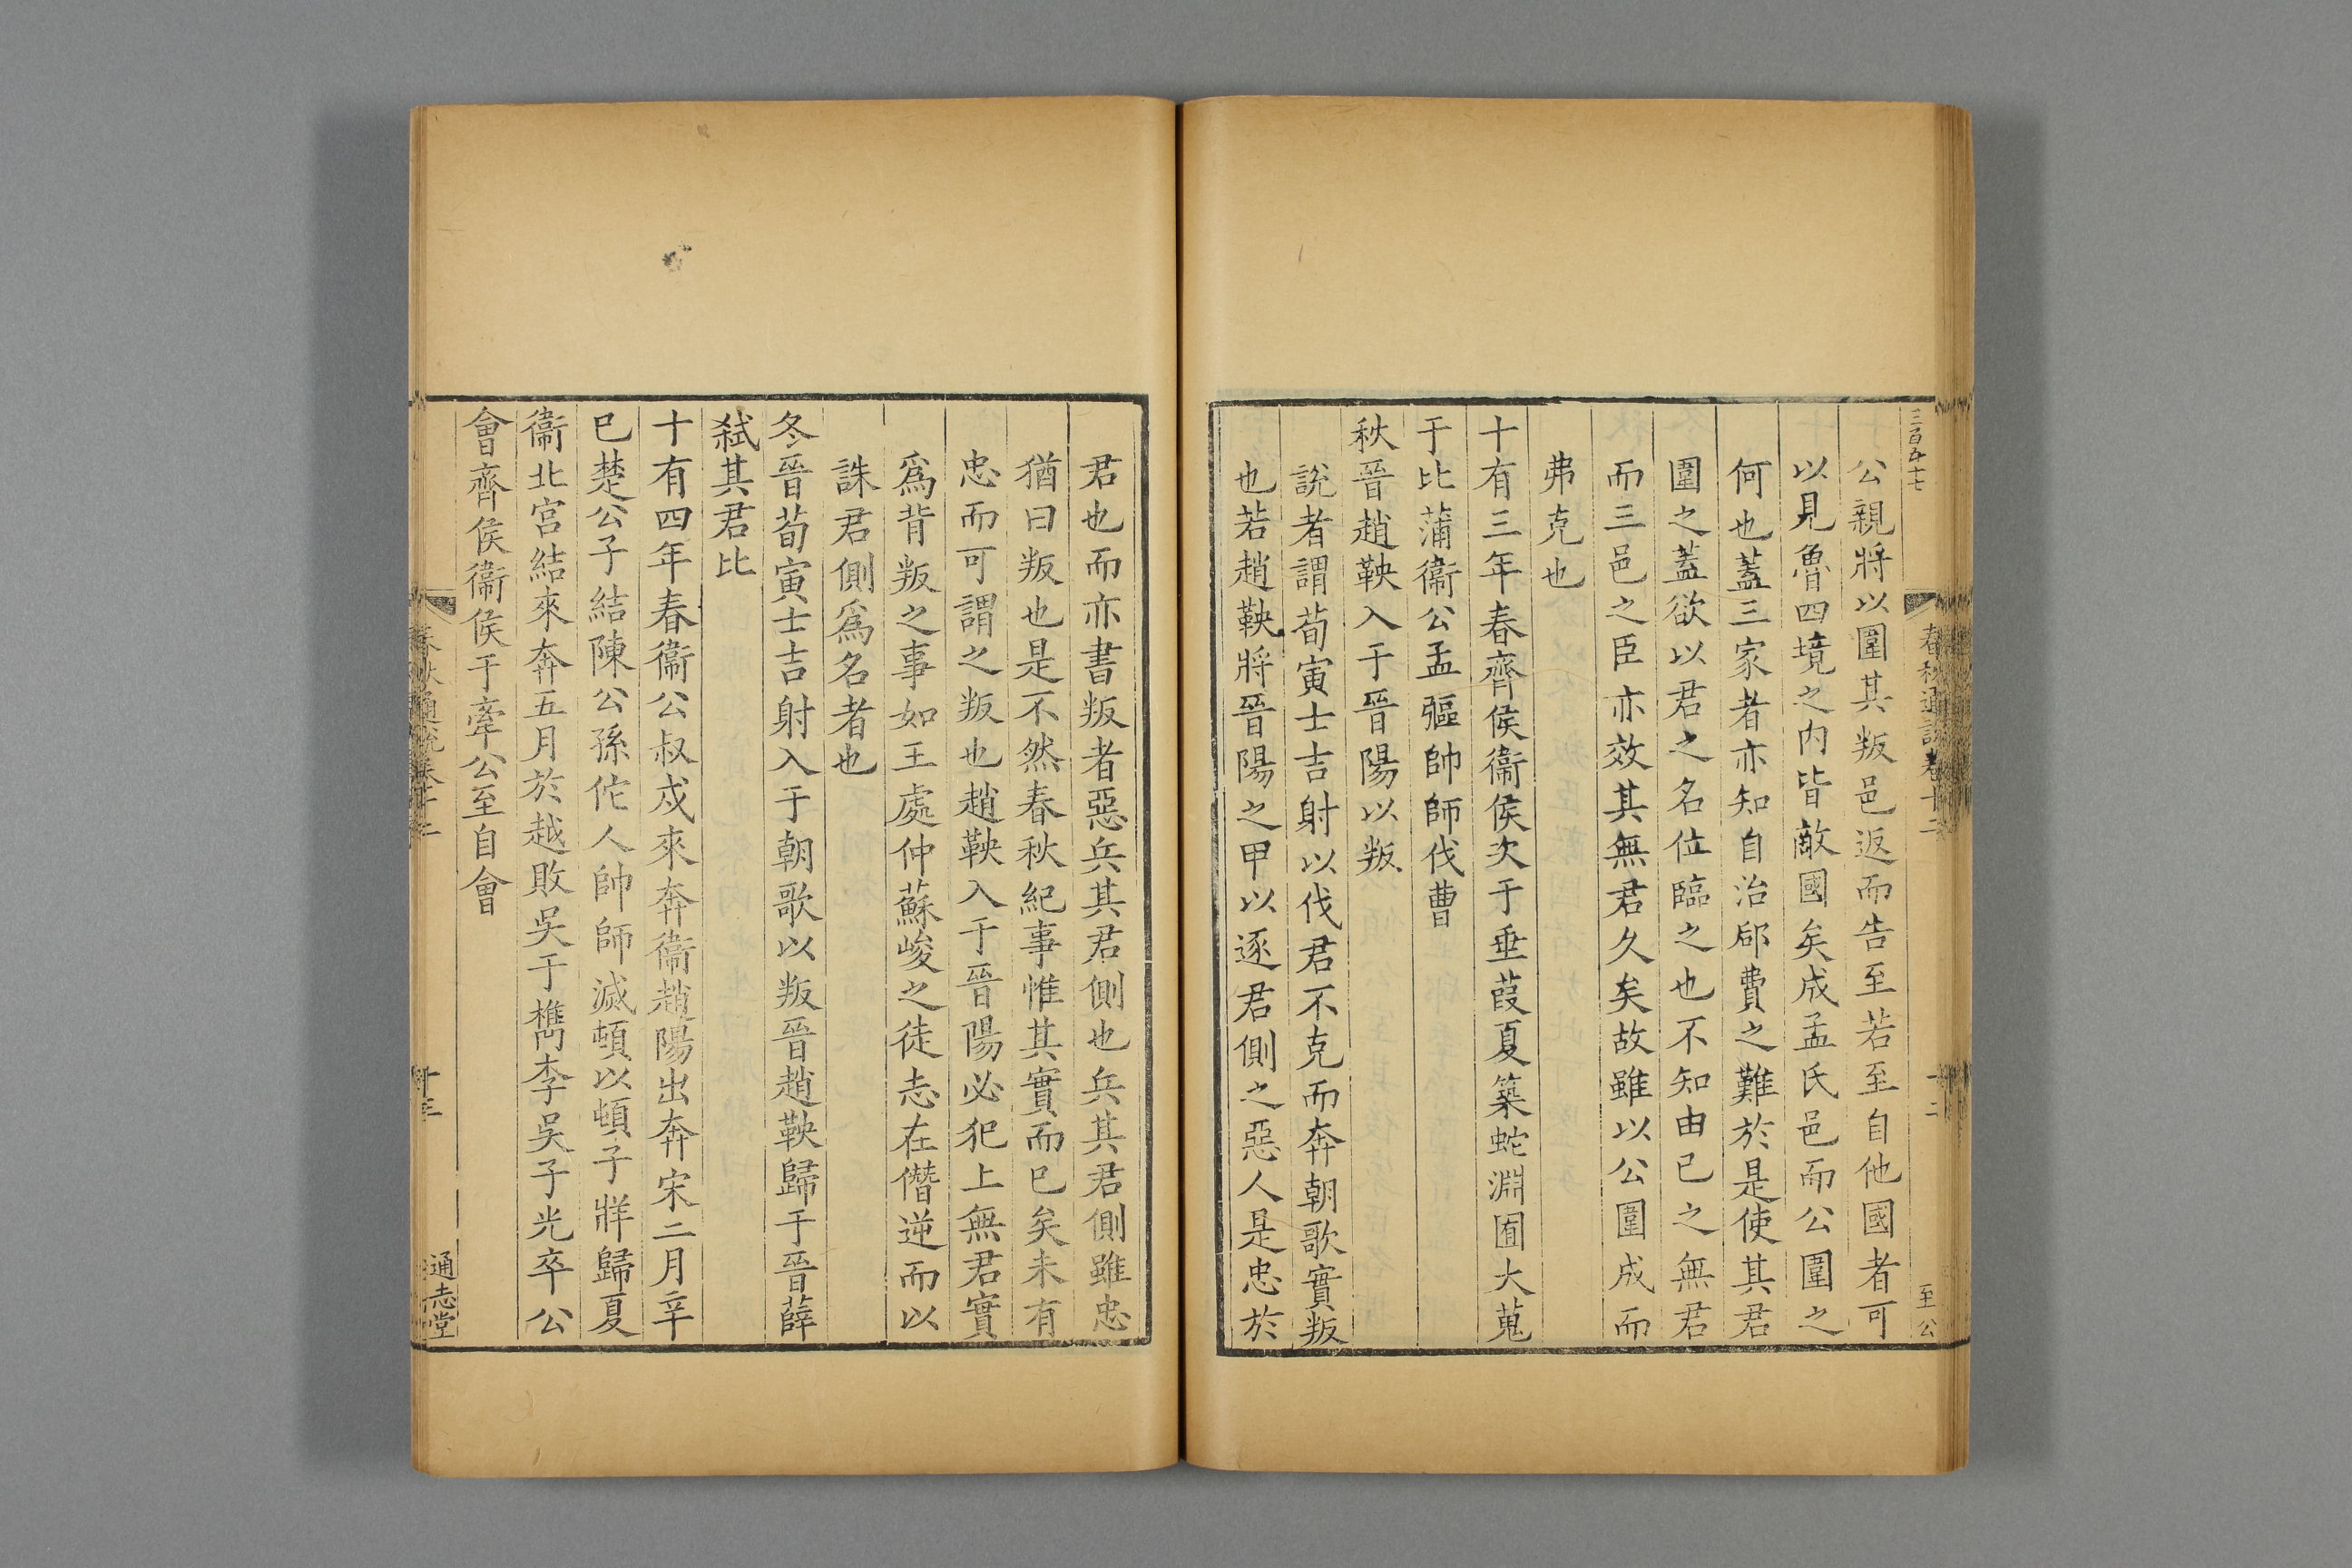 三百五十七
春秋通說卷十二
十二
至公
公親將以圍其叛邑返而告至若至自他國者可
以見魯四境之内皆敵國矣成孟氏邑而公圍之
何也蓋三家者亦知自治郈費之難於是使其君
圍之蓋欲以君之名位臨之也不知由已之無君
而三邑之臣亦效其無君久矣故雖以公圍成而
弗克也
十有三年春齊侯衞侯次于垂葭夏築蛇淵囿大蒐
于比蒲衞公孟彄帥師伐曹
秋晉趙鞅入于晉陽以叛
說者謂荀寅士吉射以伐君不克而奔朝歌實叛
也若趙鞅將晉陽之甲以逐君側之惡人是忠於
君也而亦書叛者惡兵其君側也兵其君側雖忠
猶曰叛也是不然春秋紀事惟其實而已矣未有
忠而可謂之叛也趙鞅入于晉陽必犯上無君實
爲背叛之事如王處仲蘇峻之徒志在僭逆而以
誅君側爲名者也
冬晉荀寅士吉射入于朝歌以叛晉趙鞅歸于晉薛
弑其君比
十有四年春衞公叔戍來奔衞趙陽出奔宋二月辛
巳楚公子結陳公孫佗人帥師滅頓以頓子牂歸夏
衞北宮結來奔五月於越敗吳于檇李吳子光卒公
會齊侯衞侯于牽公至自會
春秋通說卷十二
通志堂